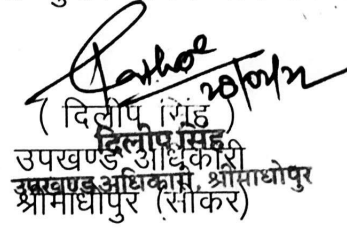 ( दिलीप सिंह )
दिलीप सिंह
उपखण्ड अधिकारी
उपखण्ड अधिकारी, श्रीमाधोपुर
श्रीमाधोपुर (सीकर)